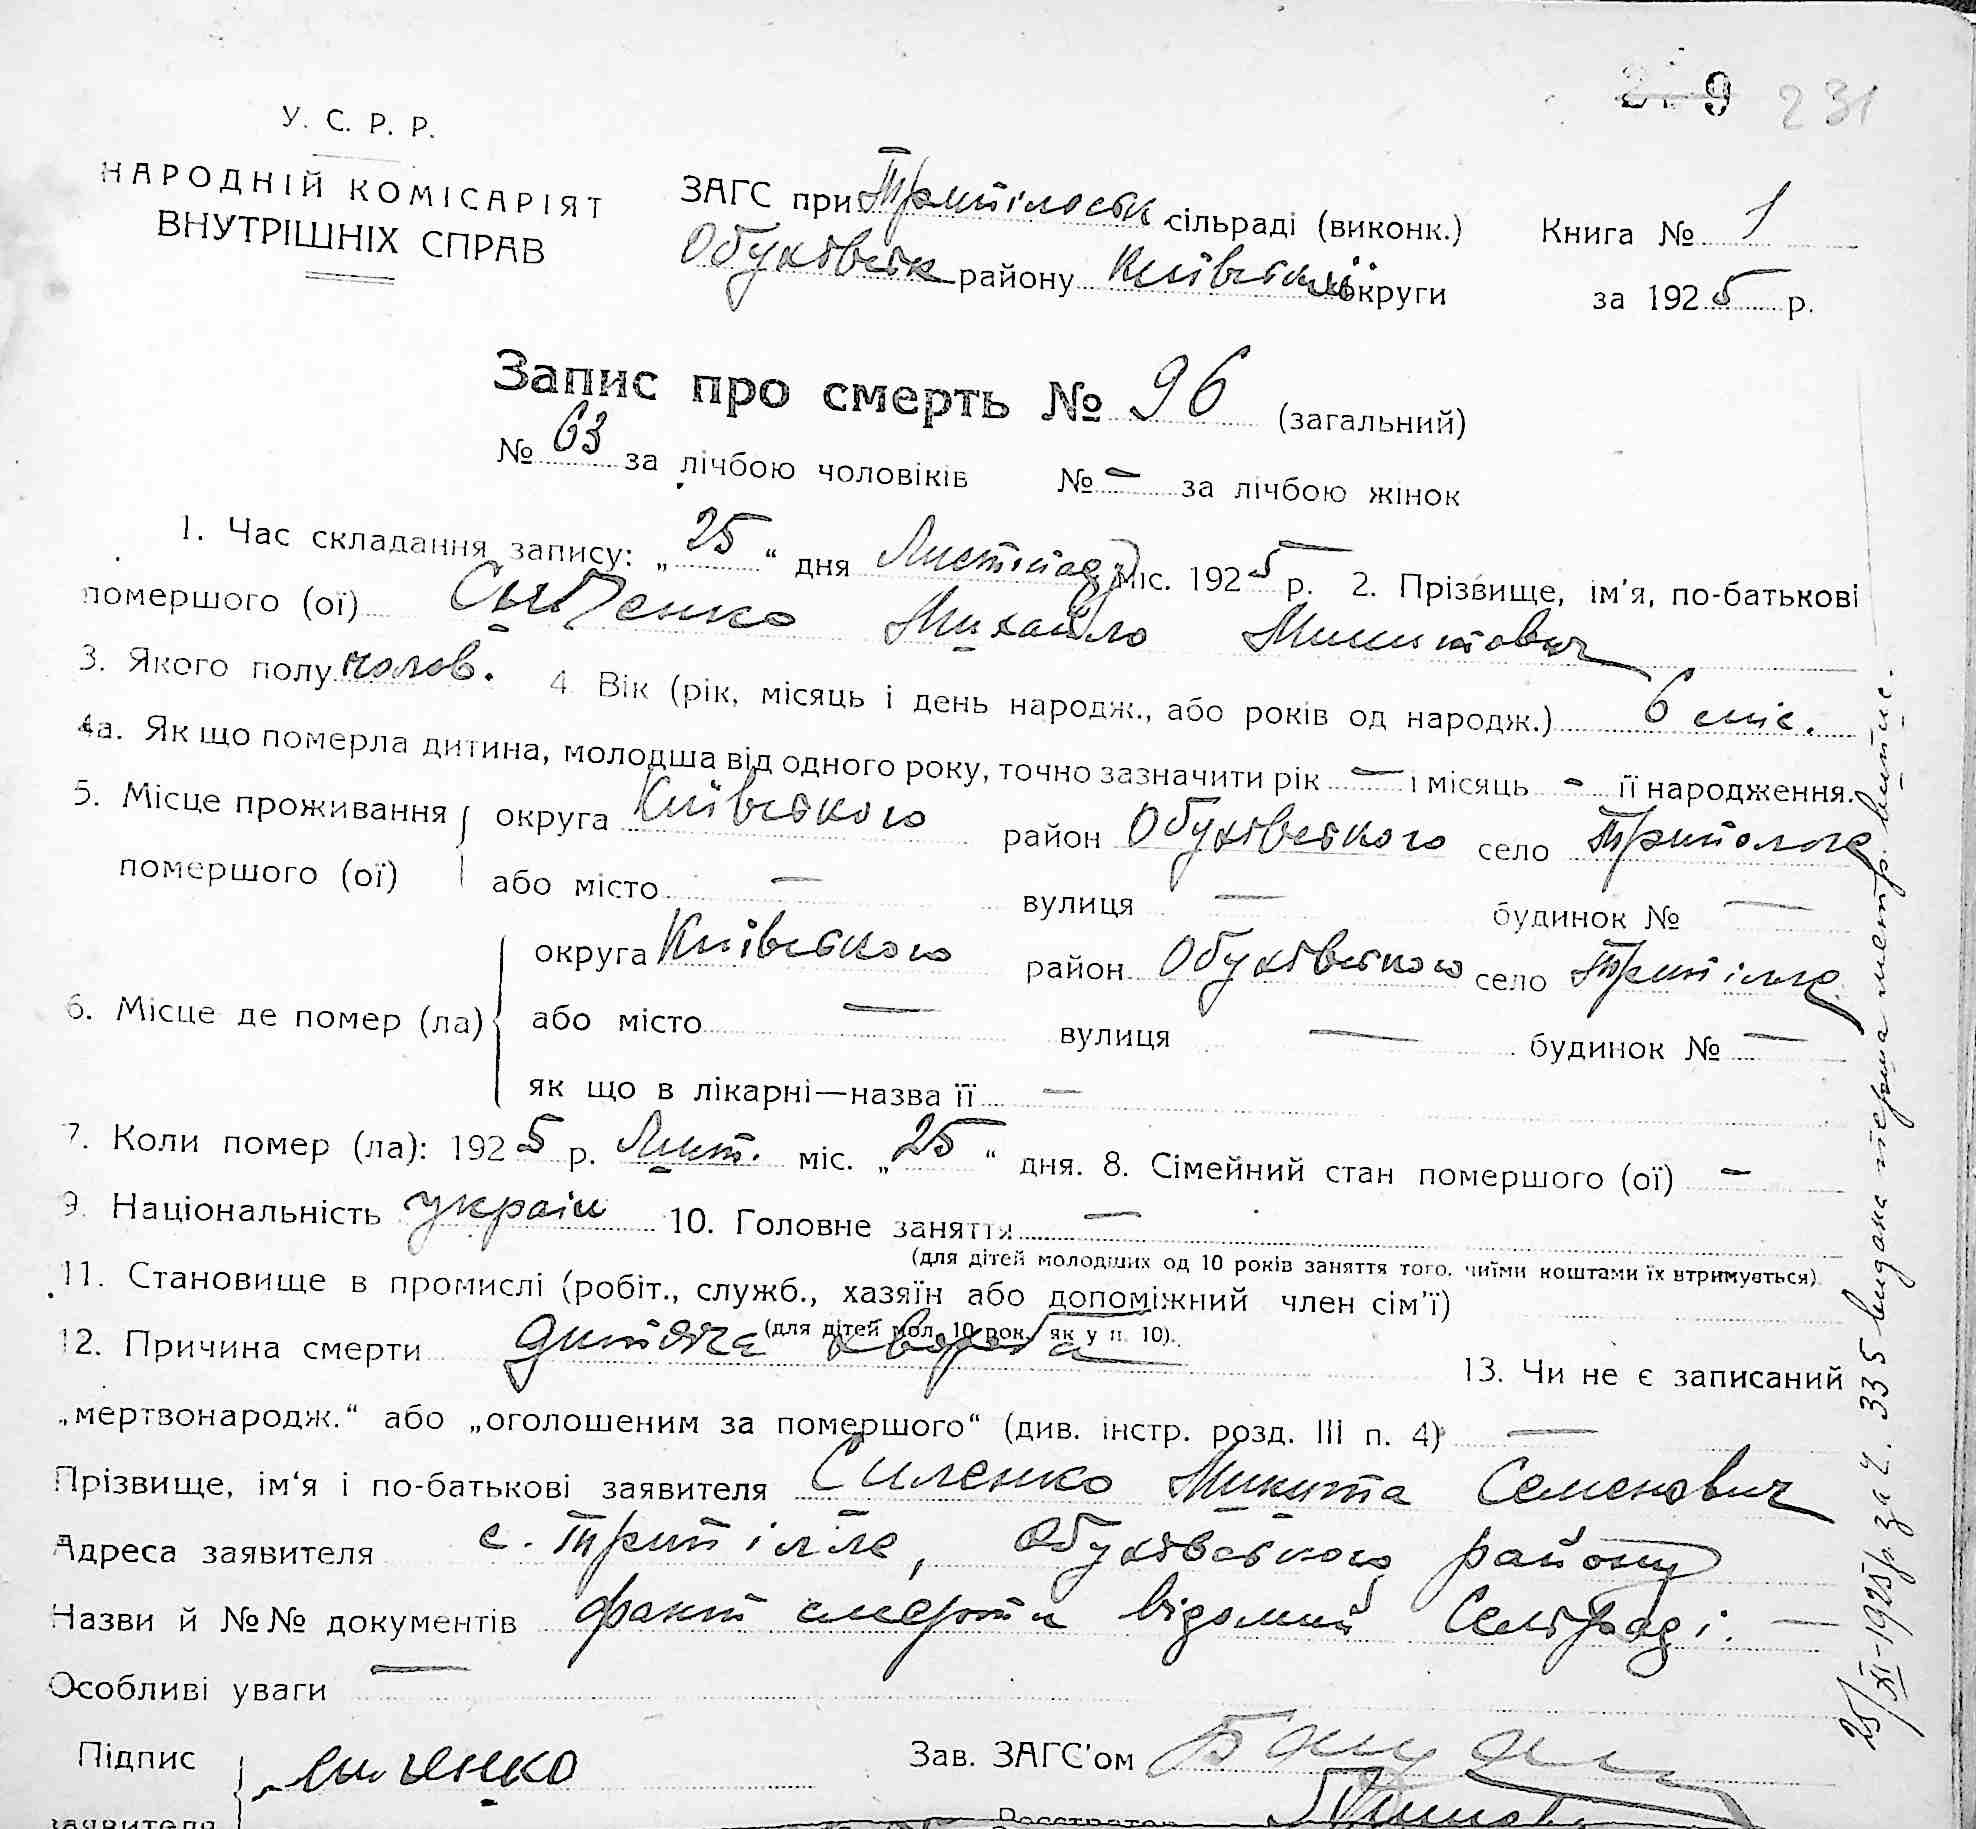 9 231
У. С. Р. Р.
НАРОДНІЙ КОМІСАРІЯТ
ВНУТРІШНІХ СПРАВ
ЗАГС при Трипільськ сільраді (виконк.) Книга № 1
Обухівськ району Київської округи за 1925 р.
Запис про смерть № 96 (загальний)
№ 63 за лічбою чоловіків № — за лічбою жінок
1. Час складання запису: „25“ дня Листопаду міс. 1925 р. 2. Прізвище, ім'я, по-батькові
помершого (ої) Михайло Микитович
3. Якого полу чолов. 4. Вік (рік, місяць і день народж., або років од народж.) 6 міс.
4а. Як що померла дитина, молодша від одного року, точно зазначити рік — і місяць - її народження.
5. Місце проживання округа Київського район Обухівського село Трипольє
помершого (ої) або місто — вулиця — будинок № —
округа Київського район Обухівського село Трипілля
6. Місце де помер (ла) або місто — вулиця — будинок № —
як що в лікарні—назва її —
7. Коли помер (ла): 1925 р. Лист. міс. „25“ дня. 8. Сімейний стан помершого (ої) -
9. Національність україн 10. Головне заняття —
(для дітей молодших од 10 років заняття того, чиїми коштами їх втримується)
11. Становище в промислі (робіт., служб., хазяїн або допоміжний член сім'ї)
(для дітей мол. 10 рок. як у п. 10).
12. Причина смерти дитяча хвороба 13. Чи не є записаний
„мертвонародж.“ або „оголошеним за помершого“ (див. інстр. розд. III п. 4) —
Прізвище, ім'я і по-батькові заявителя Силенко Микита Семенович
Адреса заявителя с. Трипілле, Обухівського району
Назви й №№ документів факт смерти відомий Сельраді. —
Особливі уваги —
Підпис Зав. ЗАГС'ом
заявителя Реєстратор
25/XI-1925 р. за ч. 335 видана перша метр. випис.